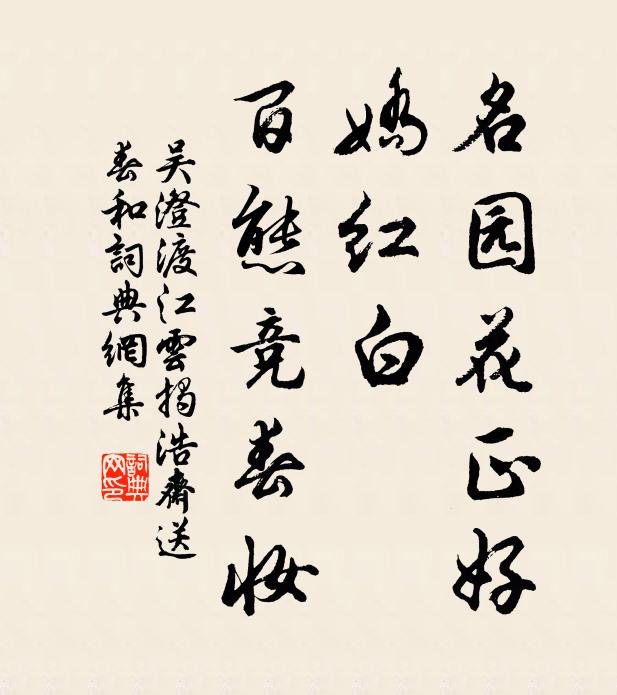 名园花正好
嬌红白
百態竞春妆
吴澄渡江雲揭浩齋送
春和詞典網集
詞典
网印